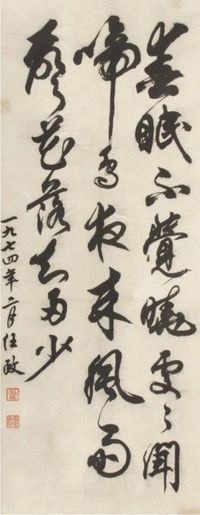 春眠不覺曉處々聞
啼鳥夜来風雨
聲花落知多少
一九七四年二月任政